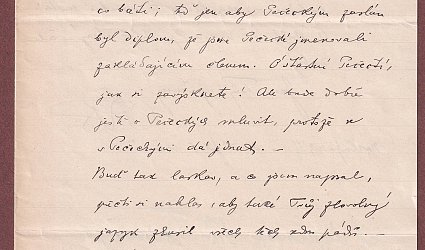 co báti; teď jen aby Pečeckým zaslán
byl diplom, že jsme Pečecké jmenovali
zakládajícím členem. Ó šťastní Pečečtí,
jak si zavýsknete! Ale bude dobře
jestli o Pečeckých mluvit, protože se
s Pečeckými dá jednat. —
Buď tak laskav, a co jsem napsal,
přečti si nahlas, aby také Tvůj zlovolný
jazyk zkusil všech těch